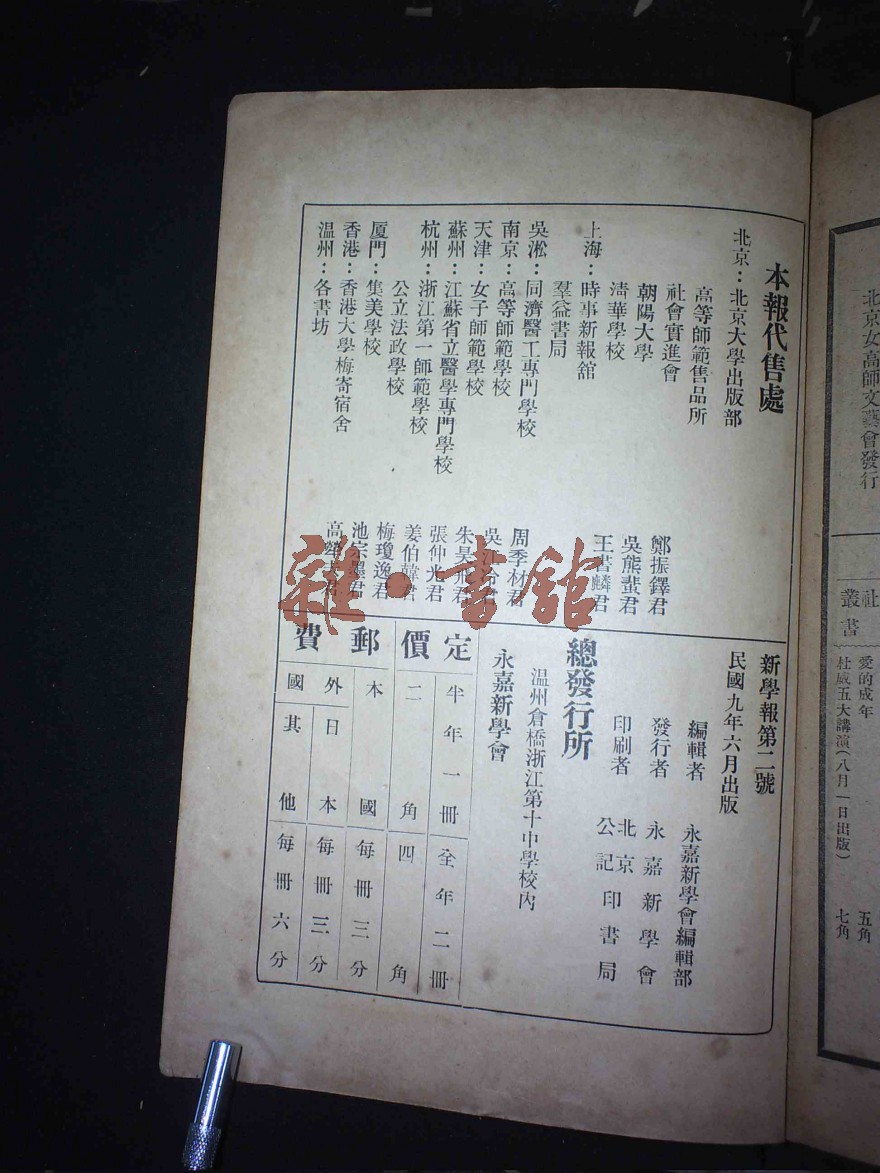 本報代售處
北京：北京大學出版部
高等師範售品所
社會實進會 鄭振鐸君
朝陽大學 吳熊蜚君
淸華學校 王書麟君
上海：時事新報館
羣益書局
吳淞：同濟醫工專門學校 周季材君
南京：高等師範學校 吳
天津：女子師範學校 朱
蘇州：江蘇省立醫學專門學校 張仲光君
杭州：浙江第一師範學校 姜伯韓君
公立法政學校 梅瓊逸君
厦門：集美學校 池宗墨君
香港：香港大學梅寄宿舍 高
温州：各書坊
新學報第二號
民國九年六月出版
編輯者 永嘉新學會編輯部
發行者 永嘉新學會
印刷者 北京公記印書局
總發行所
温州倉橋浙江第十中學校內
永嘉新學會
定價
半年一冊 全年二冊
二角 四角
郵費
本國 每冊三分
外國
日本 每冊三分
其他 每冊六分
雜·書館
北京女高師文藝會發行
社
叢書
愛的成年 五角
杜威五大講演（八月一日出版） 七角